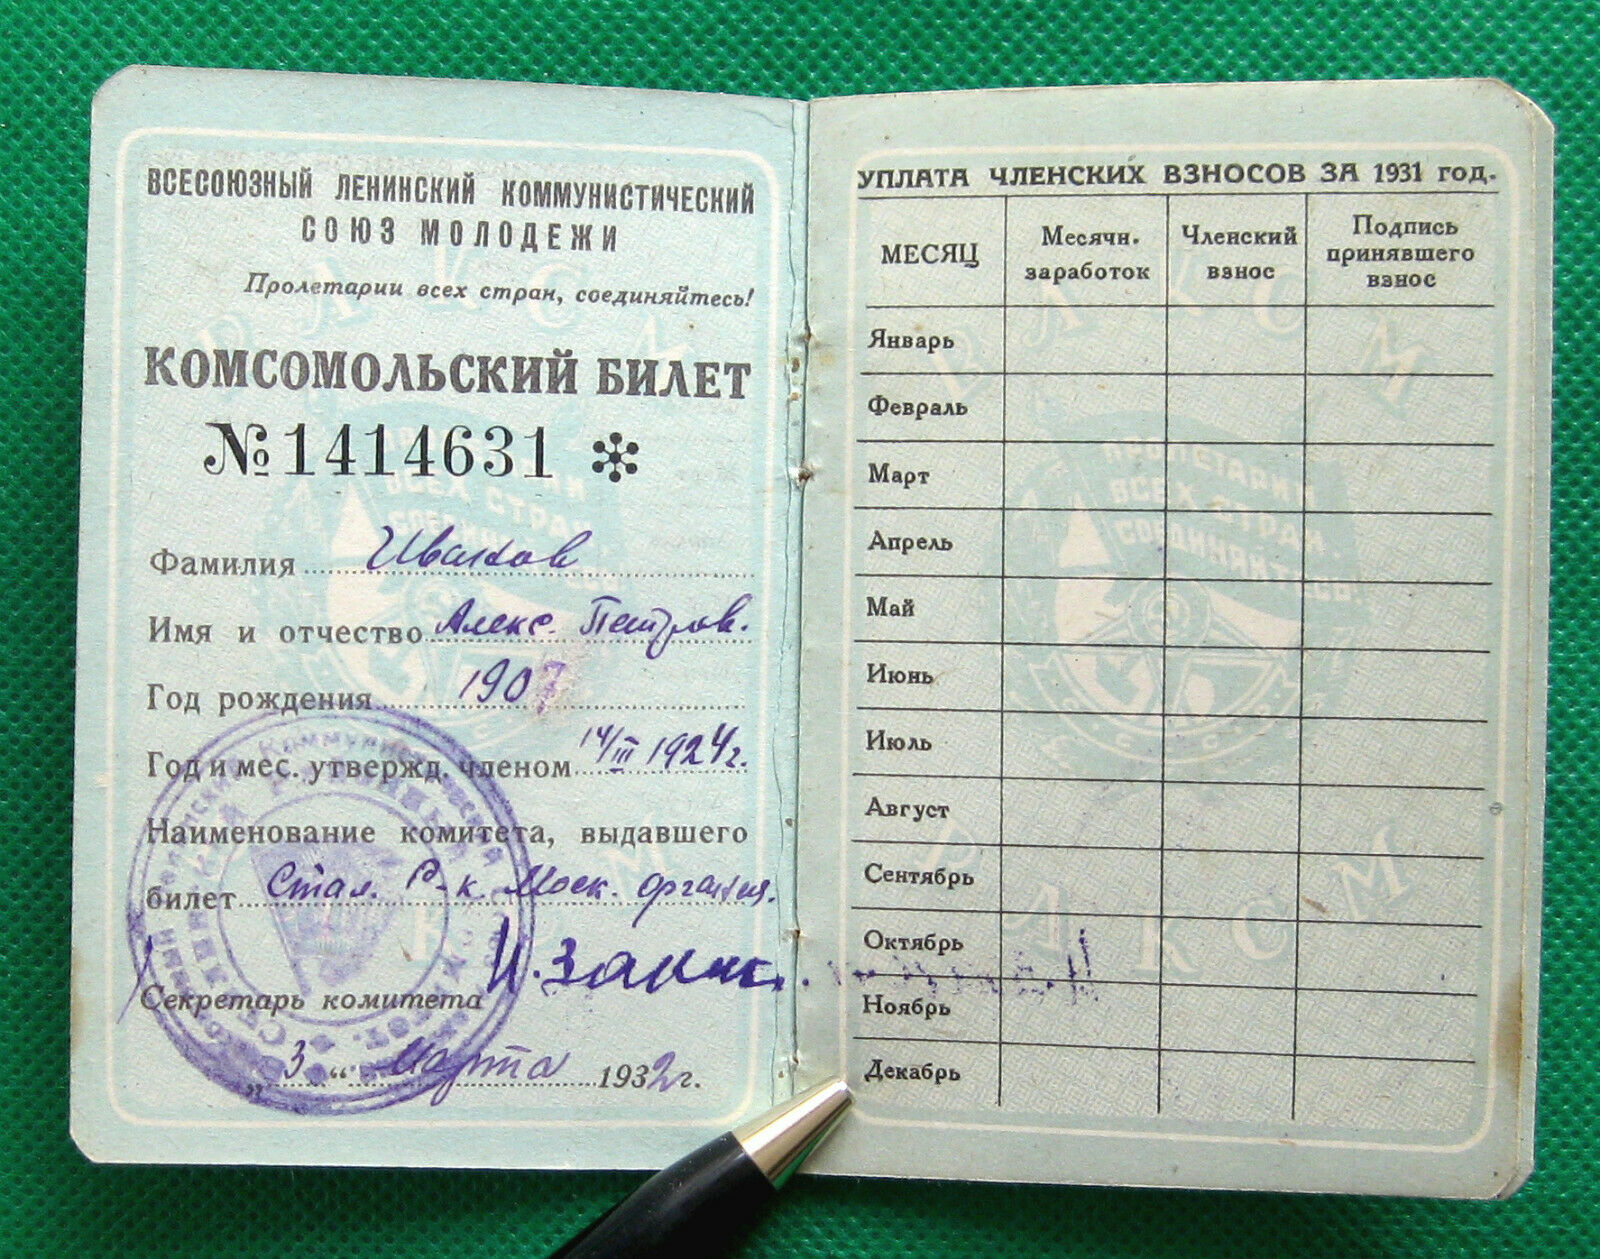 ВСЕСОЮЗНЫЙ ЛЕНИНСКИЙ КОММУНИСТИЧЕСКИЙ
СОЮЗ МОЛОДЕЖИ
Пролетарии всех стран, соединяйтесь!
КОМСОМОЛЬСКИЙ БИЛЕТ
№ 1414631
Фамилия Иванов
Имя и отчество Алекс. Петров.
Год рождения 1907
Год и мес. утвержд. членом 14/III 1924 г.
Наименование комитета, выдавшего
билет Стал. Р-к. Моск. организ.
Секретарь комитета
„3“ Марта 1932 г.
УПЛАТА ЧЛЕНСКИХ ВЗНОСОВ ЗА 1931 год.
МЕСЯЦ
Месячн. заработок
Членский взнос
Подпись принявшего взнос
Январь
Февраль
Март
Апрель
Май
Июнь
Июль
Август
Сентябрь
Октябрь
Ноябрь
Декабрь
ВЛКСМ
ПРОЛЕТАРИИ
ВСЕХ СТРАН
СОЕДИНЯЙТЕСЬ
ВЛКСМ